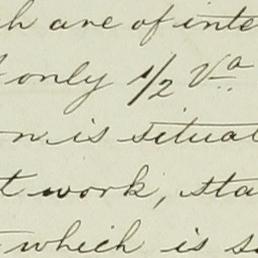 ch are of inte
only 1/2 Va
on is situat
t work, sta
which is s